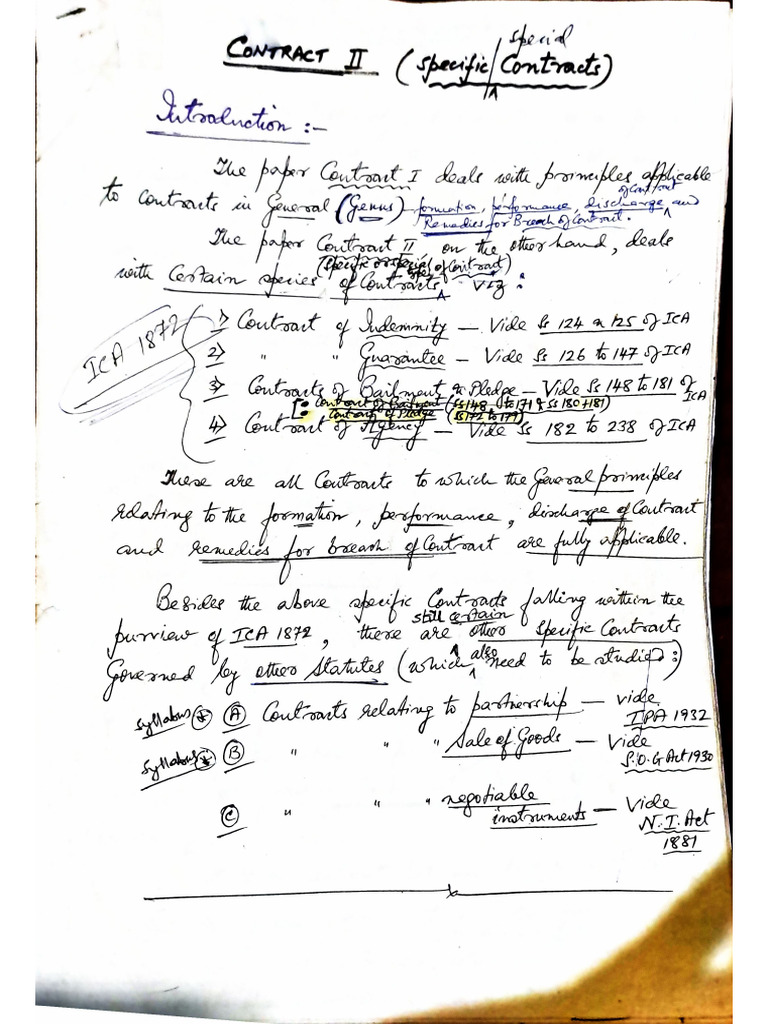 special
CONTRACT II (Specific/Contracts)
Introduction :-
The paper Contract I deals with principles applicable
of Contract
to contracts in General (Genus) formation, performance, discharge and
Remedies for Breach of Contract.
The paper Contract II on the other hand, deals
(Specific or special of Contract)
with certain species of Contracts viz :
ICA 1872
1) Contract of Indemnity — Vide Ss 124 & 125 of ICA
2) " " Guarantee — Vide Ss 126 to 147 of ICA
3) Contracts of Bailment & Pledge — Vide Ss 148 to 181 of ICA
[: Contract of Bailment (Ss 148 to 171 & Ss 180 & 181)
Contract of Pledge (Ss 172 to 179)
4) Contract of Agency — Vide Ss 182 to 238 of ICA
These are all Contracts to which the General principles
relating to the formation, performance, discharge of Contract
and remedies for breach of Contract are fully applicable.
Besides the above specific Contracts falling within the
still certain
purview of ICA 1872, there are other Specific Contracts
also
Governed by other Statutes (which need to be studied :)
syllabus * A Contracts relating to partnership — vide
IPA 1932
syllabus * B " " " Sale of Goods — Vide
S.O.G Act 1930
C " " " negotiable instruments — Vide
N.I. Act
1881